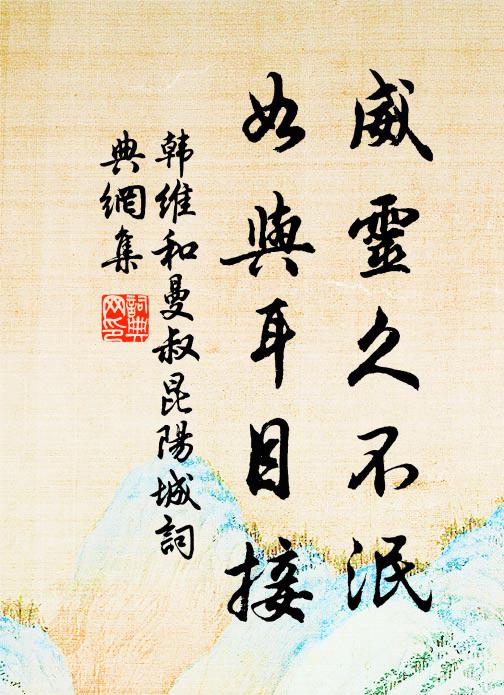 威靈久不泯
如與耳目接
韩维和曼叔昆陽城詞
典網集
詞典网印